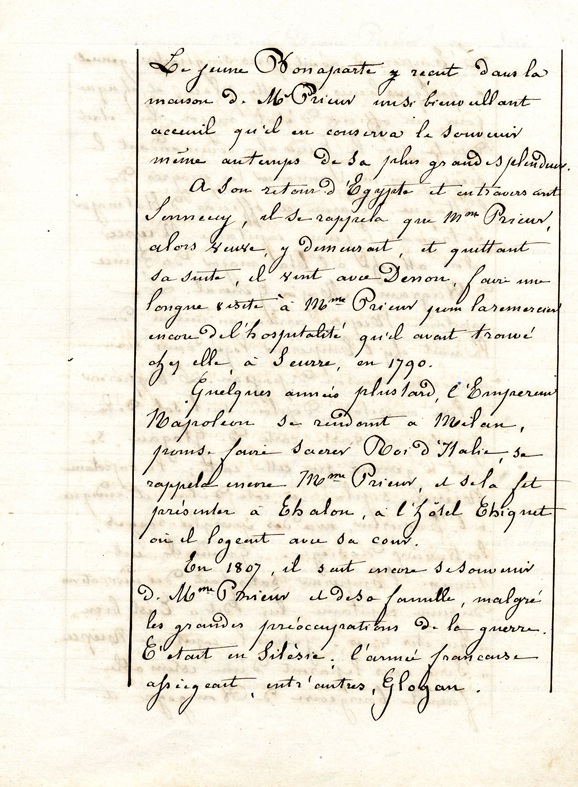 Le jeune Bonaparte y reçut dans la
maison de Mr Prieur un si bienveillant
acceuil qu'il en conserva le souvenir
même au temps de sa plus grande splendeur.
A son retour d'Egypte et en traversant
Sennecey, il se rappela que Mme Prieur,
alors veuve, y demeurait, et quittant
sa suite, il vint avec Denon, faire une
longue visite à Mme Prieur pour la remercier
encore de l'hospitalité qu'il avait trouvé
chez elle, à Seurre, en 1790.
Quelques années plus tard, l'Empereur
Napoleon se rendant a Milan,
pour se faire sacrer Roi d'Italie, se
rappela encore Mme Prieur, et se la fit
présenter à Chalon, à l'hôtel Chiquet
où il logeait avec sa cour.
En 1807, il sait encore se souvenir
de Mme Prieur et de sa famille, malgré
les grandes préoccupations de la guerre.
C'etait en Silésie; l'armée francaise
assiégeait, entr'autres, Glogau.